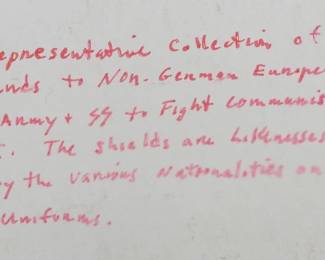 epresentative Collection of
nds to Non-German Europe
Army + SS to Fight Communis
. The shields are Likenesses
y the various Nationalities on
uniforms.